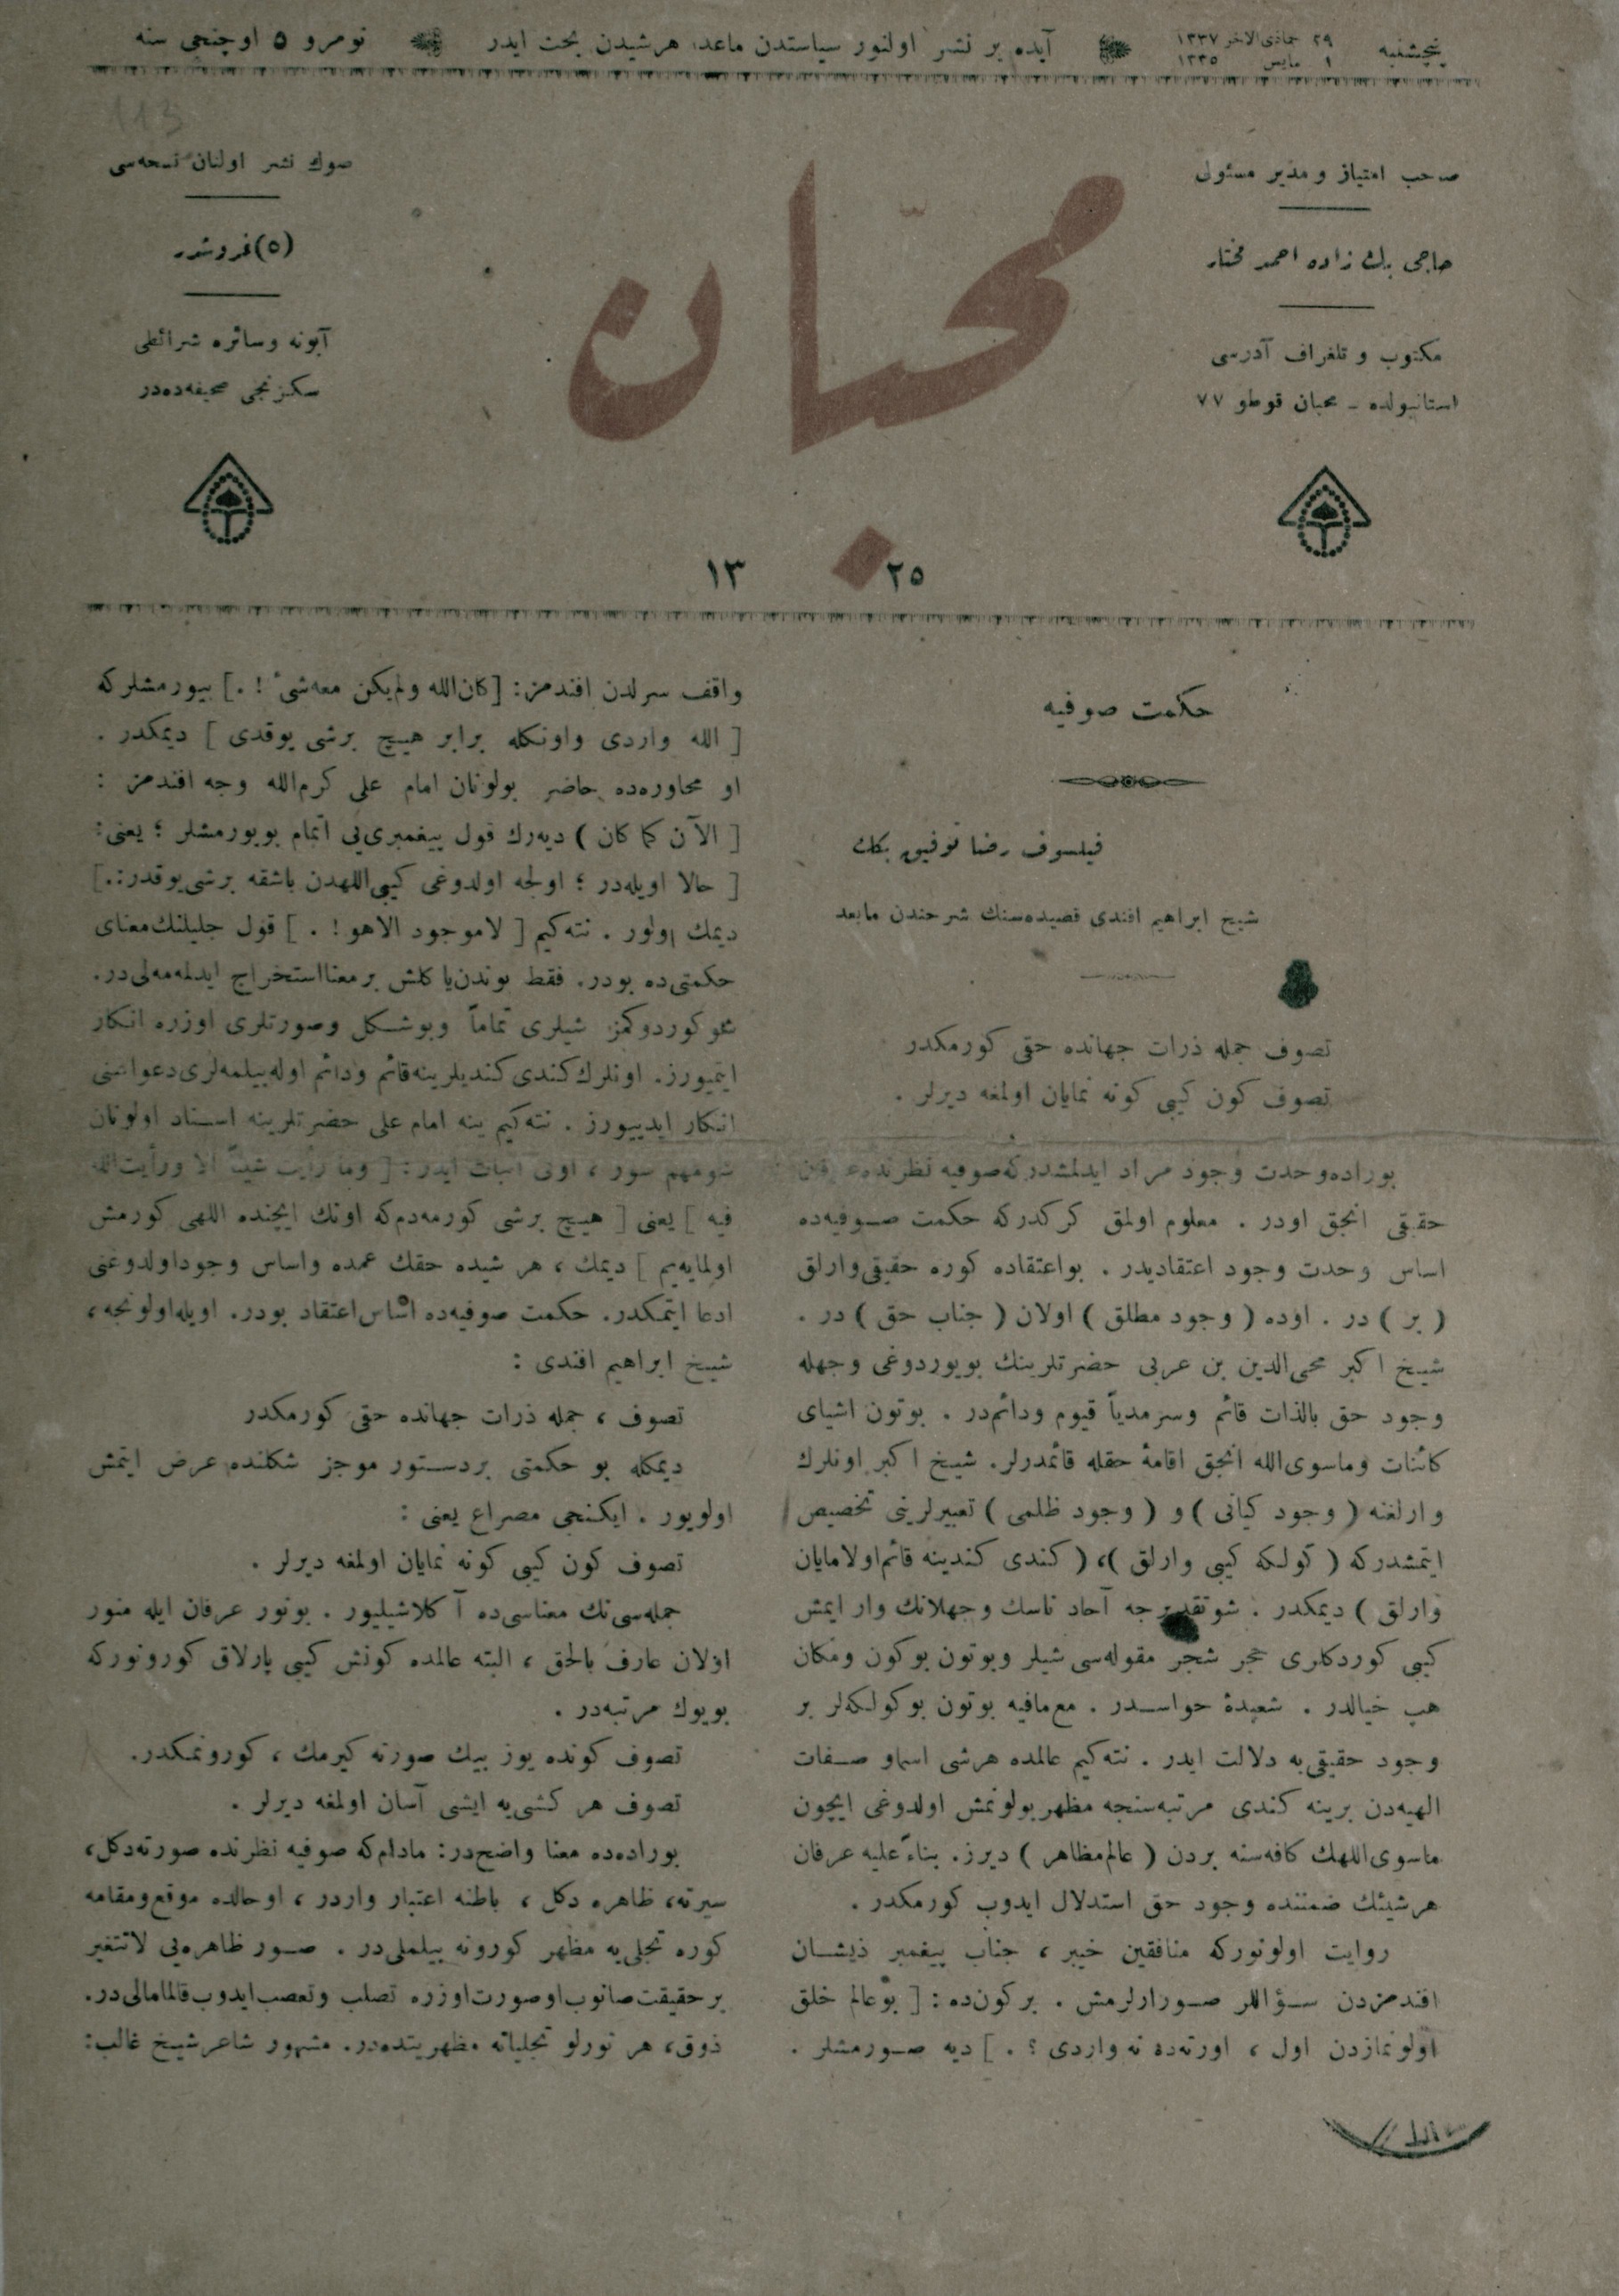 پنجشنبه
٢٩ جمادى‌الاخر ١٣٣٧
١ مايس ١٣٣٥
آيده بر نشر اولنور سياستدن ماعدا هرشيدن بحث ايدر
نومرو ٥ اوچنجى سنه
صاحب امتياز و مدير مسئول
حاجى بك زاده احمد مختار
مكتوب و تلغراف آدرسى
استانبولده ـ محبان قوطو ٧٧
محبان
١٣ ٢٥
صوك نشر اولنان نسخه‌سى
(٥) غروشدر
آبونه وسائره شرائطى
سكزنجى صحيفه‌ده‌در
حكمت صوفيه
فيلسوف رضا توفيق بكك
شيخ ابراهيم افندى قصيده‌سنك شرحندن مابعد
تصوف جمله ذرات جهانده حقى كورمكدر
تصوف كون كيبى كونه نمايان اولمغه ديرلر .
بوراده وحدت وجود مراد ايدلمشدركه صوفيه نظرنده عرفان
حقيقى انجق اودر . معلوم اولمق كركدركه حكمت صوفيه‌ده
اساس وحدت وجود اعتقاديدر . بواعتقاده كوره حقيقى وارلق
( بر ) در . اوده ( وجود مطلق ) اولان ( جناب حق ) در .
شيخ اكبر محى‌الدين بن عربى حضرتلرينك بويوردوغى وجهله
وجود حق بالذات قائم وسرمدياً قيوم ودائم‌در . بوتون اشياى
كائنات وماسوى‌الله انجق اقامهٔ حقله قائمدرلر. شيخ اكبر اونلرك
وارلغنه ( وجود كيانى ) و ( وجود ظلمى ) تعبيرلرينى تخصيص
ايتمشدركه ( كولكه كيبى وارلق )، ( كندى كندينه قائم اولامايان
وارلق ) ديمكدر . شوتقديرجه آحاد ناسك وجهلانك وار ايمش
كيبى كوردكلرى حجر شجر مقوله‌سى شيلر وبوتون بوكون ومكان
هپ خيالدر . شعبدهٔ حواسدر . مع‌مافيه بوتون بوكولكه‌لر بر
وجود حقيقى‌يه دلالت ايدر . نته‌كيم عالمده هرشى اسماو صفات
الهيه‌دن برينه كندى مرتبه‌سنجه مظهر بولونمش اولدوغى ايچون
ماسوى‌اللهك كافه‌سنه بردن ( عالم مظاهر ) ديرز. بناءً عليه عرفان
هرشيئك ضمننده وجود حق استدلال ايدوب كورمكدر .
روايت اولونوركه منافقين خيبر ، جناب پيغمبر ذيشان
افندمزدن سؤاللر صورارلرمش . بركون‌ده : [ بوعالم خلق
اولونمازدن اول ، اورته‌ده نه واردى ؟ . ] ديه صورمشلر .
واقف سرلدن افندمز : [ كان الله ولم يكن معه شىٔ ! . ] بيورمشلركه
[ الله واردى واونكله برابر هيچ برشى يوقدى ] ديمكدر .
او محاوره‌ده حاضر بولونان امام على كرم‌الله وجه افندمز :
[ الآن كما كان ) ديه‌رك قول پيغمبرى‌يى اتمام بويورمشلر ؛ يعنى :
[ حالا اويله‌در ؛ اولجه اولدوغى كيبى اللهدن باشقه برشى يوقدر : . ]
ديمك اولور . نته‌كيم [ لاموجود الاهو ! . ] قول جليلنك معناى
حكمتى‌ده بودر . فقط بوندن ياكلش برمعنا استخراج ايدلمه‌مه‌لى‌در.
شو كوردوكمز شيلرى تماماً وبوشكل وصورتلرى اوزره انكار
ايتميورز. اونلرك كندى كنديلرينه قائم ودائم اوله‌بيلمه‌لرى دعواسنى
انكار ايدييورز . نته‌كيم ينه امام على حضرتلرينه اسناد اولونان
شومهم سوز ، اونى اثبات ايدر : [ وما رأيت شيئاً الا ورأيت الله
فيه ] يعنى [ هيچ برشى كورمه‌دم كه اونك ايچنده اللهى كورمش
اولمايه‌يم ] ديمك ، هر شيده حقك عمده واساس وجود اولدوغنى
ادعا ايتمكدر. حكمت صوفيه‌ده اساس اعتقاد بودر. اويله اولونجه ،
شيخ ابراهيم افندى :
تصوف ، جمله ذرات جهانده حقى كورمكدر
ديمكله بو حكمتى بر دستور موجز شكلنده عرض ايتمش
اولويور . ايكنجى مصراع يعنى :
تصوف كون كيبى كونه نمايان اولمغه ديرلر .
جمله‌سى‌نك معناسى‌ده آكلاشيليور . بونور عرفان ايله منور
اولان عارف بالحق ، البته عالمده كونش كيبى پارلاق كورونوركه
بويوك مرتبه‌در .
تصوف كونده يوز بيك صورته كيرمك ، كورونمكدر.
تصوف هر كشى‌يه ايشى آسان اولمغه ديرلر .
بوراده‌ده معنا واضح‌در : مادام‌كه صوفيه نظرنده صورته دكل،
سيرته، ظاهره دكل ، باطنه اعتبار واردر ، اوحالده موقع ومقامه
كوره تجلى‌يه مظهر كورونه بيلملى‌در . صور ظاهره‌يى لاتتغير
برحقيقت صانوب اوصورت اوزره تصلب وتعصب ايدوب قالمامالى‌در.
ذوق، هر تورلو تجلياته مظهريتده‌در. مشهور شاعر شيخ غالب :